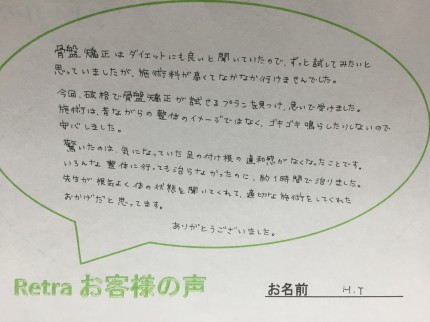 骨盤矯正はダイエットにも良いと聞いていたので、ずっと試してみたいと
思っていましたが、施術料が高くてなかなか行けませんでした。
今回、破格で骨盤矯正が試せるプランを見つけ、急いで受けました。
施術は、昔ながらの整体のイメージではなく、ゴキゴキ鳴らしたりしないので
安心しました。
驚いたのは、気になっていた足の付け根の違和感がなくなったことです。
いろんな整体に行っても治らなかったのに、約1時間で治りました。
先生が根気よく体の状態を聞いてくれて、適切な施術をしてくれた
おかげだと思ってます。
ありがとうございました。
Retra お客様の声
お名前 H.Y